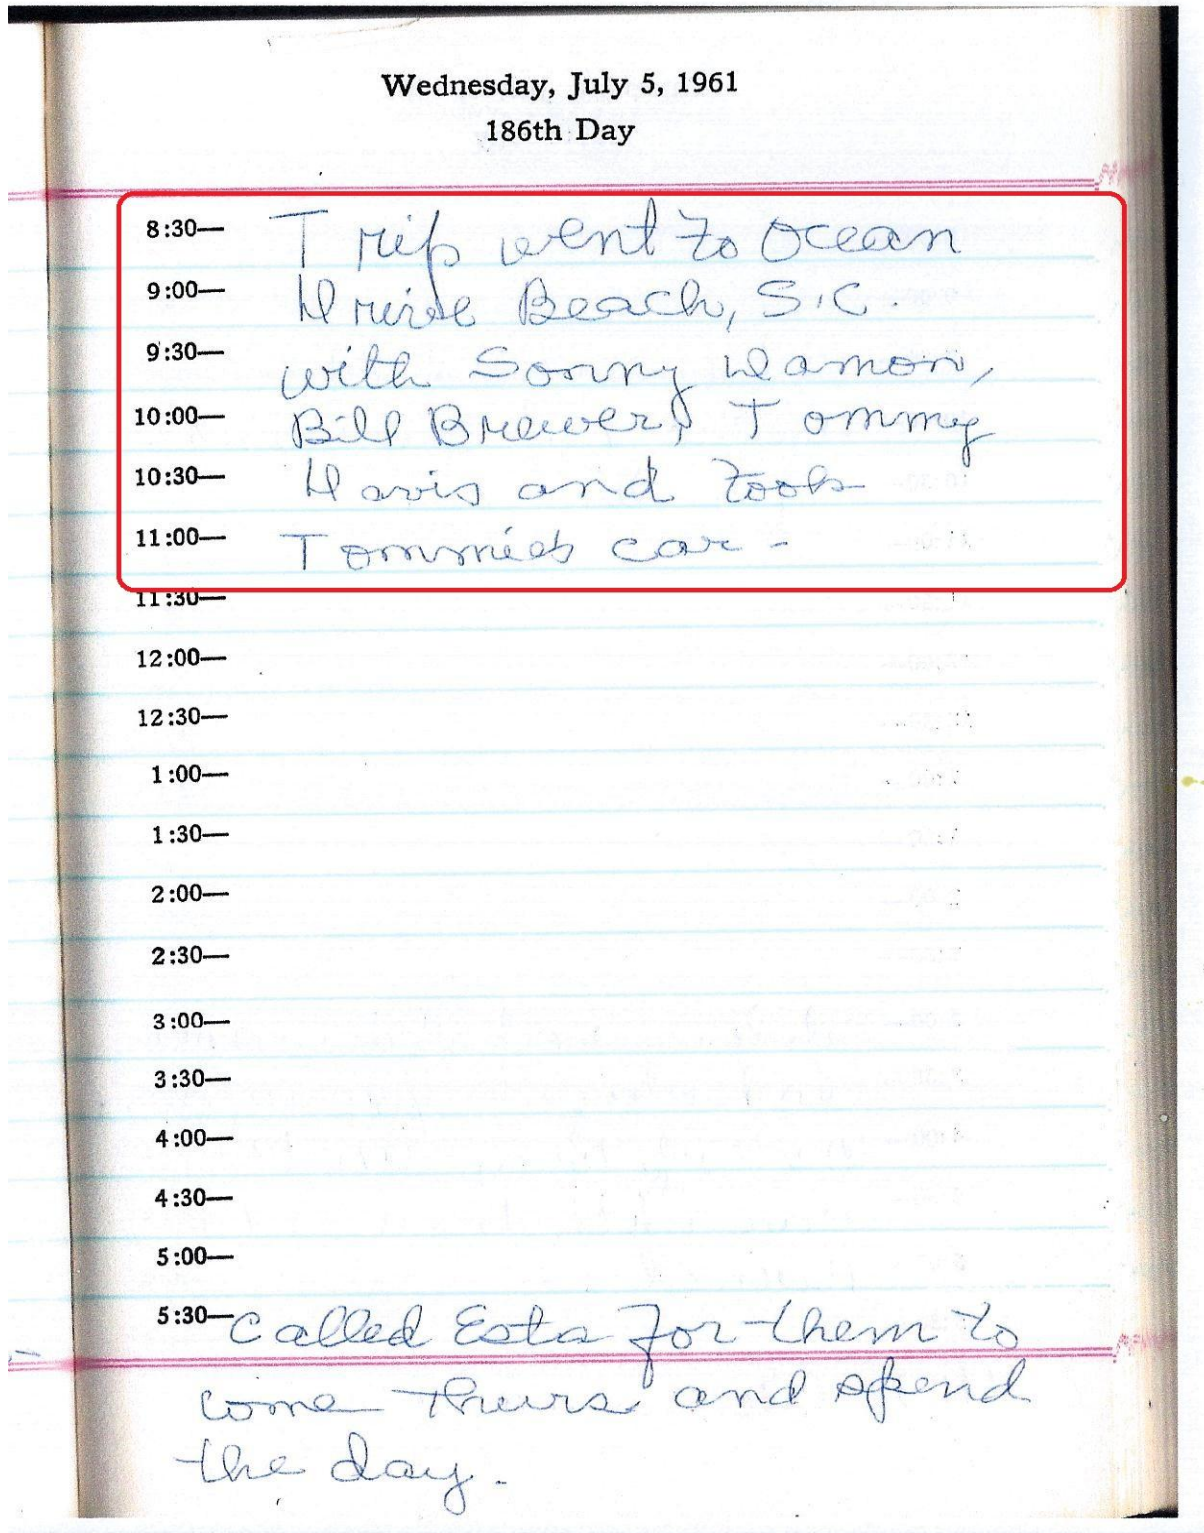 Wednesday, July 5, 1961
186th Day
8:30— Trip went to Ocean
9:00— Drive Beach, S.C.
9:30— with Sonny Damon,
10:00— Bill Brewer, Tommy
10:30— Davis and took
11:00— Tommies car -
11:30—
12:00—
12:30—
1:00—
1:30—
2:00—
2:30—
3:00—
3:30—
4:00—
4:30—
5:00—
5:30— Called Esta for them to
come Thurs. and spend
the day.